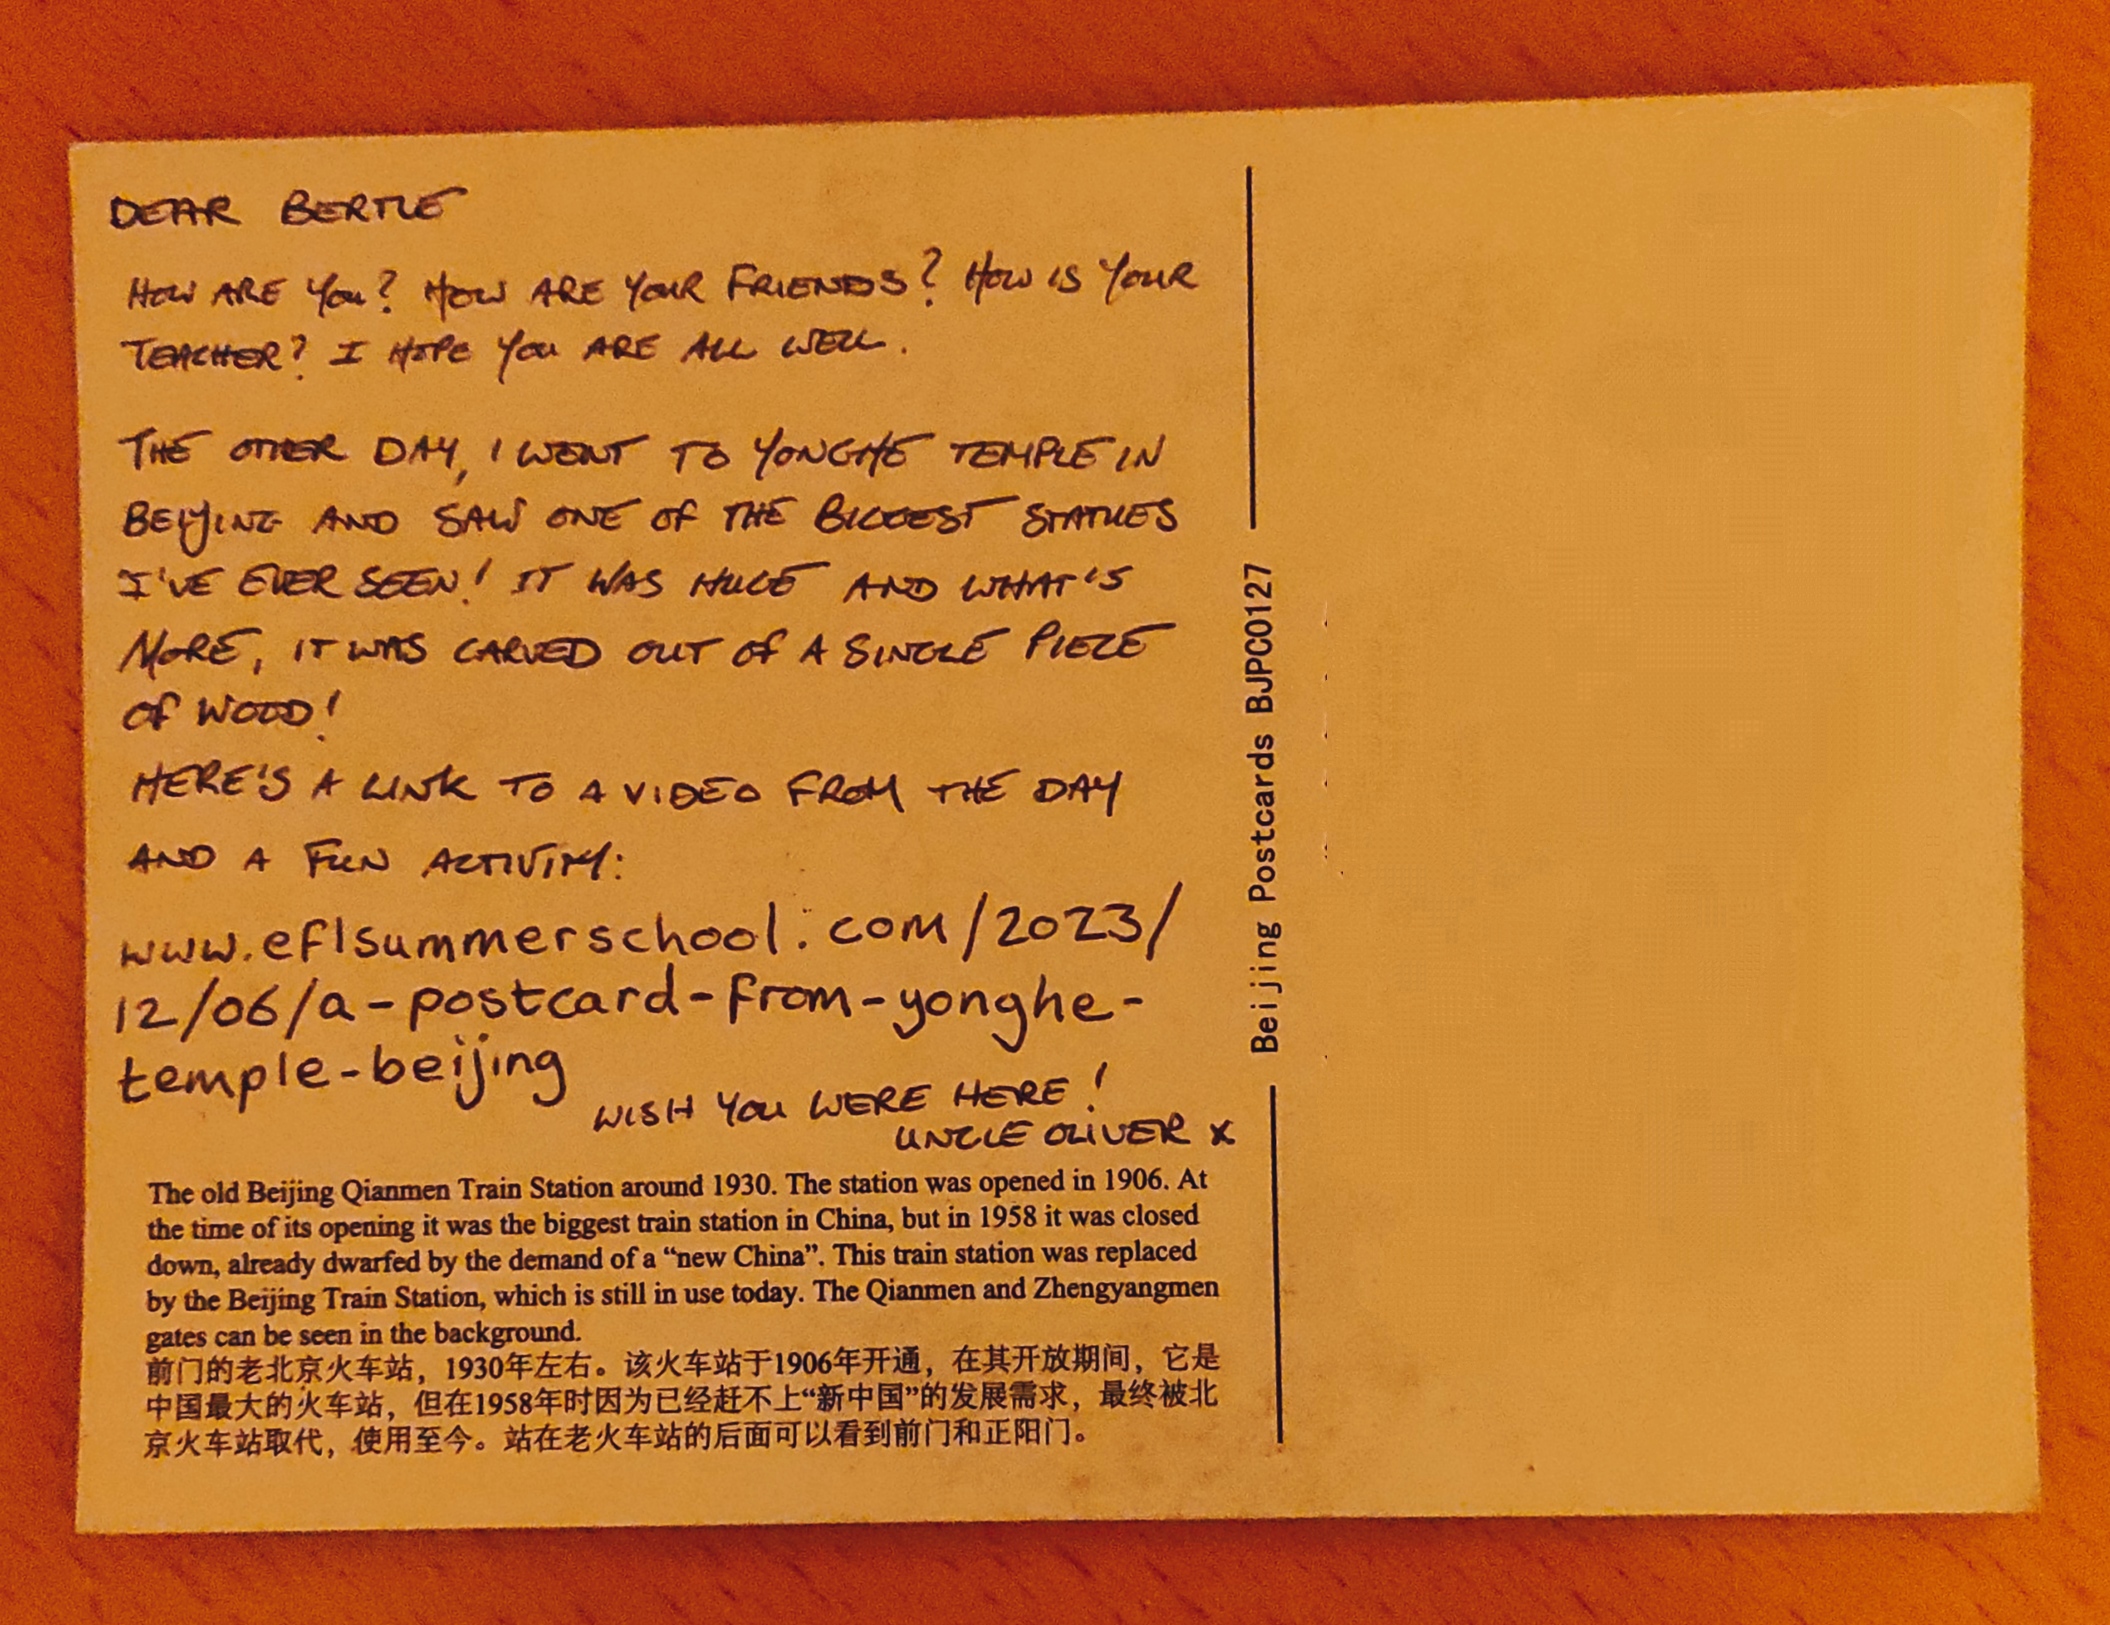 DEAR BERTIE
HOW ARE YOU? HOW ARE YOUR FRIENDS? HOW IS YOUR
TEACHER? I HOPE YOU ARE ALL WELL.
THE OTHER DAY, I WENT TO YONGHE TEMPLE IN
BEIJING AND SAW ONE OF THE BIGGEST STATUES
I'VE EVER SEEN! IT WAS HUGE AND WHAT'S
MORE, IT WAS CARVED OUT OF A SINGLE PIECE
OF WOOD!
HERE'S A LINK TO A VIDEO FROM THE DAY
AND A FUN ACTIVITY:
www.eflsummerschool.com/2023/
12/06/a-postcard-from-yonghe-
temple-beijing
WISH YOU WERE HERE!
UNCLE OLIVER x
The old Beijing Qianmen Train Station around 1930. The station was opened in 1906. At
the time of its opening it was the biggest train station in China, but in 1958 it was closed
down, already dwarfed by the demand of a “new China”. This train station was replaced
by the Beijing Train Station, which is still in use today. The Qianmen and Zhengyangmen
gates can be seen in the background.
前门的老北京火车站，1930年左右。该火车站于1906年开通，在其开放期间，它是
中国最大的火车站，但在1958年时因为已经赶不上“新中国”的发展需求，最终被北
京火车站取代，使用至今。站在老火车站的后面可以看到前门和正阳门。
Beijing Postcards BJPC0127